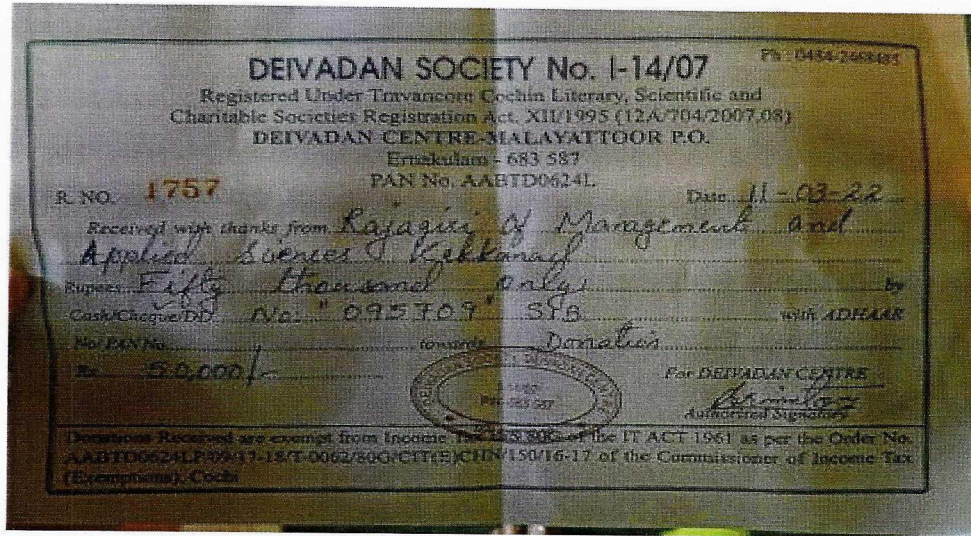 DEIVADAN SOCIETY No. I-14/07
Ph : 0484-
Registered Under Travancore Cochin Literary, Scientific and
Charitable Societies Registration Act. XII/1995 (12A/704/2007,08)
DEIVADAN CENTRE-MALAYATTOOR P.O.
Ernakulam - 683 587
PAN No. AABTD0624L
R. NO. 1757 Date 11-03-22
Received with thanks from Rajagiri of Management and
Applied Sciences Kakkanad
Rupees Fifty thousand only by
Cash/Cheque/DD No: "095709" SIB with ADHAAR
No/ PAN No. towards Donation
Rs. 50,000/- For DEIVADAN CENTRE
683 587
Authorized Signatory
Donations Received are exempt from Income Tax U/S 80G of the IT ACT 1961 as per the Order No.
AABTD0624LP/09/17-18/T-0062/80G/CIT(E)CHN/150/16-17 of the Commissioner of Income Tax
(Exemptions), Cochi